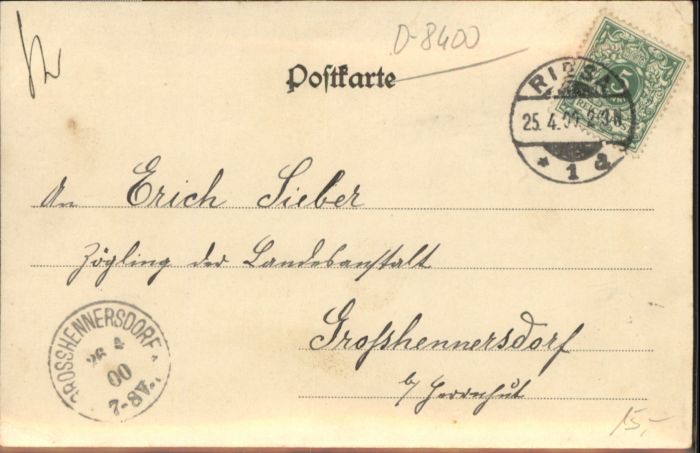 D-8400
Postkarte
5
RIESA
25. 4. 00 2-3 N
* 1 d
An Erich Sieber
Zögling der Landesanstalt
Grosshennersdorf
b/ Herrnhut
GROSSHENNERSDORF
26 4
00
7-8V.
15,-